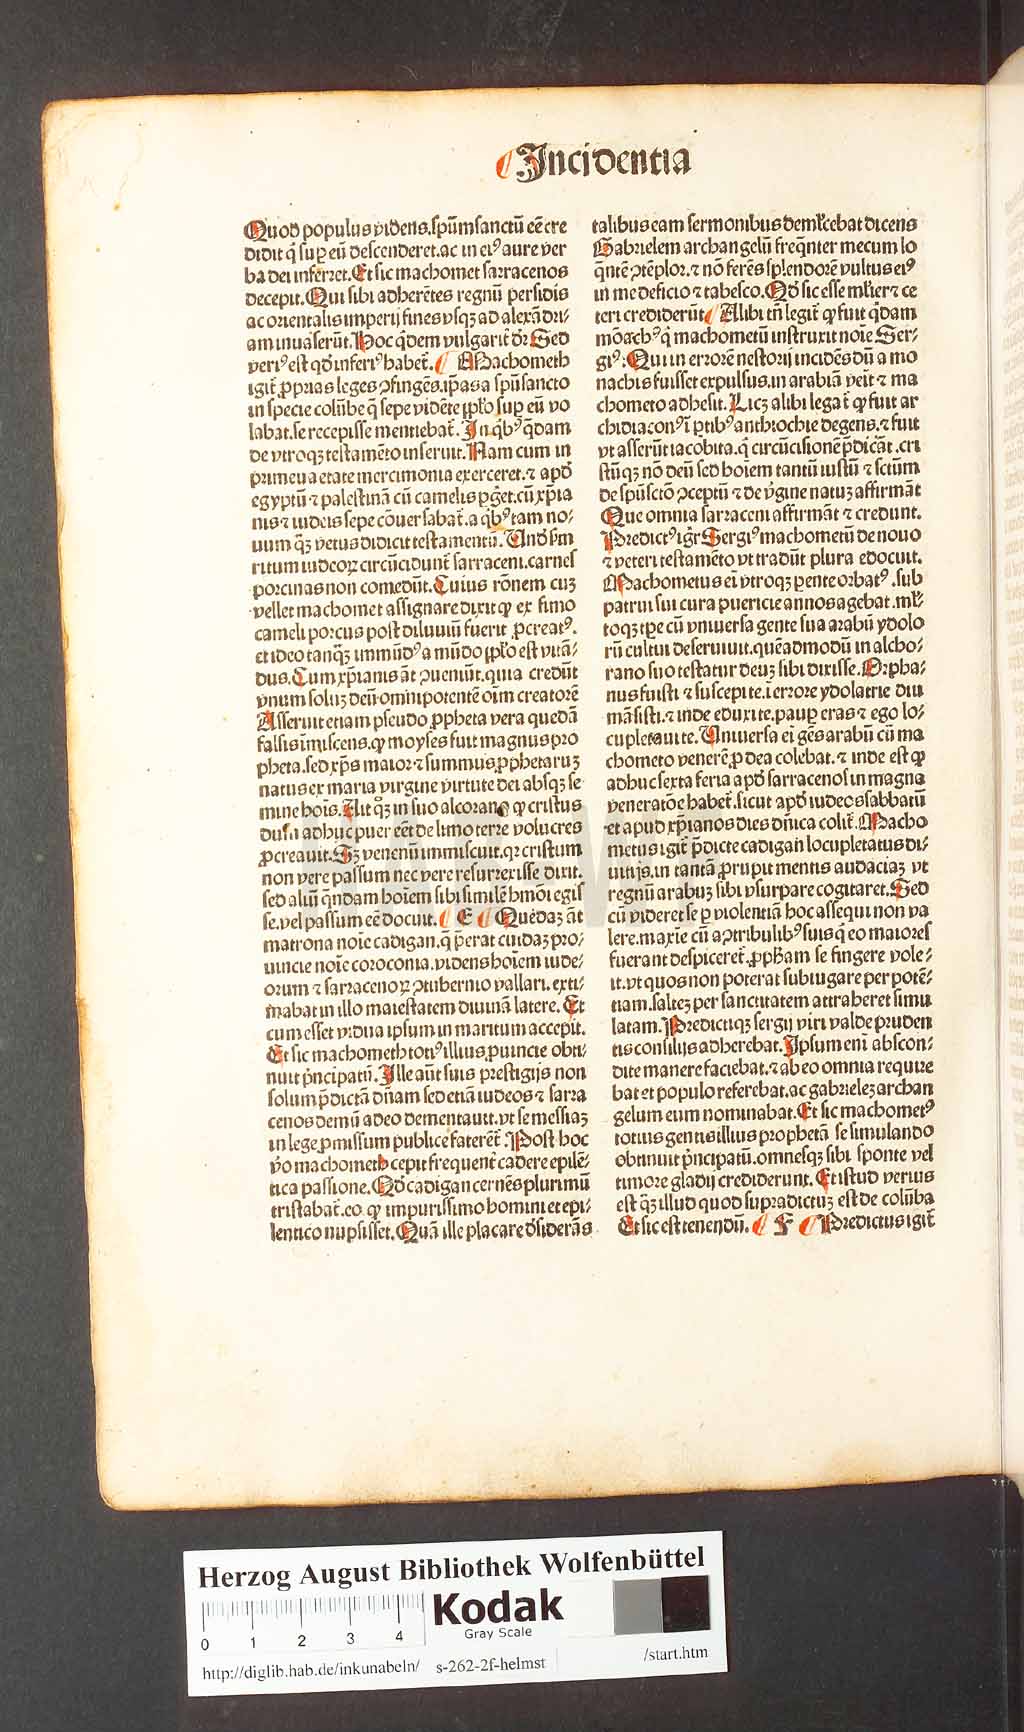 Incidentia
Quod populus videns.spūmsanctū eē cre
didit q̄ suꝑ eū descenderet.ac in eiꝰ aure ver
ba dei inferret.Et sic machomet sarracenos
decepit.Qui sibi adherētes regnū persidis
ac orientalis imperij fines vsqꝫ ad alexādri⸗
am inuaserūt.Hoc q̄dem vulgarit̄ dr̄.Sed
veriꝰ est qd̄ inferiꝰ habet̄. Machometh
igit̄ ꝓprias leges ꝯfingēs.ip̄as a spū sancto
in specie colūbe q̄ sepe vidēte pp̄lo sup eū vo
labat.se recepisse mentiebat̄.In qbꝰ q̄dam
de vtroqꝫ testamēto inseruit.Nam cum in
primeua etate mercimonia exerceret.⁊ apd̄
egyptū ⁊ palestinā cū camelis ꝑget.cū xp̄ia
nis ⁊ iudeis sepe cōuersabat̄.a qbꝰ tam no⸗
uum qꝫ vetus didicit testamentū.Vnd̄ scd̄m
ritum iudeoꝝ circūcidunt̄ sarraceni.carnes
porcinas non comedūt.Cuius rōnem cuꝫ
vellet machomet assignare dixit ꝙ ex fimo
cameli porcus post diluuiū fuerit ꝓcreatꝰ.
et ideo tanqꝫ immūdꝰ a mūdo pp̄lo est vitā⸗
dus.Cum xp̄ianis āt ꝯueniūt.quia credūt
vnum soluꝫ deū omnipotentē oīm creatorē
Asseruit etiam pseudo ꝓpheta vera quedā
falsis īmiscens.ꝙ moyses fuit magnus pro
pheta.sed xp̄s maior ⁊ summus ꝓphetaruꝫ
natus ex maria virgine virtute dei absqꝫ se
mine hoīs.Ait qꝫ in suo alcorano ꝙ cristus
dum adhuc puer eēt de limo terre volucres
ꝓcreauit.Sꝫ venenū immiscuit.qꝛ cristum
non vere passum nec vere resurrexisse dixit.
sed aliū q̄ndam hoīem sibi similē hmōi egis
se.vel passum eē docuit. E Quedaꝫ āt
matrona noīe cadigan.q̄ p̄erat cuidaꝫ pro⸗
uincie noīe coroconia.videns hoīem iude⸗
orum ⁊ sarracenoꝝ ꝯtubernio vallari.exti⸗
mabat in illo maiestatem diuinā latere.Et
cum esset vidua ipsum in maritum accepit.
Et sic machometh totiꝰ illius ꝓuincie obti⸗
nuit p̄ncipatū.Ille aūt suis prestigijs non
solum p̄dictā dn̄am sed etiā iudeos ⁊ sarra
cenos demū adeo dementauit.vt se messiaꝫ
in lege ꝓmissum publice fateret̄.Post hoc
v̄o machometh cepit frequent̄ cadere epilē⸗
tica passione.Qd̄ cadigan cernēs plurimū
tristabat̄.eo ꝙ impurissimo homini et epi⸗
lentico nupsisset.Quā ille placare d̄siderās
talibus eam sermonibus demlcebat dicens
Gabrielem archangelū freqn̄ter mecum lo
q̄ntē ꝯtēplor.⁊ nō ferēs splendorē vultus eiꝰ
in me deficio ⁊ tabesco.Qd̄ sic esse mlier ⁊ ce
teri crediderūt Alibi tn̄ legit̄ ꝙ fuit q̄dam
mōachꝰ q̄ machometū instruxit noīe Ser⸗
giꝰ.Qui in errorē nestorij incidēs dū a mo
nachis fuisset expulsus.in arabiā venit ⁊ ma
chometo adhesit.Licꝫ alibi legat̄ ꝙ fuit ar
chidiaconꝰ ī ꝑtibꝰ anthiochie degens.⁊ fuit
vt asserūt iacobita.q̄ circūcisionē p̄dicāt.cri
stūqꝫ nō deū sed hoīem tantū iustū ⁊ sctūm
de spū sctō ꝯceptū ⁊ de v̄gine natuꝫ affirmāt
Que omnia sarraceni affirmāt ⁊ credunt.
Predictꝰ igr̄ Sergiꝰ machometū de nouo
⁊ veteri testamēto vt tradūt plura edocuit.
Machometus eī vtroqꝫ ꝑente orbatꝰ.sub
patrui sui cura puericie annos agebat.ml⸗
toqꝫ tꝑe cū vniuersa gente sua arabū ydolo
rū cultui deseruiuit.quēadmodū in alcho⸗
rano suo testatur deuꝫ sibi dixisse.Orpha⸗
nus fuisti ⁊ suscepi te.ī errore ydolatrie diu
māsisti.⁊ inde eduxi te.pauꝑ eras ⁊ ego lo⸗
cupletaui te.Vniuersa eī gēs arabū cū ma
chometo venerē ꝓ dea colebat.⁊ inde est ꝙ
adhuc sexta feria apd̄ sarracenos in magna
veneratōe habet̄.sicut apd̄ iudeos sabbatū
et apud xp̄ianos dies dn̄ica colit̄.Macho
metus igit̄ p̄dicte cadigan locupletatus di⸗
uitijs.in tantā ꝓrupit mentis audaciaꝫ vt
regnū arabuꝫ sibi vsurpare cogitaret.Sed
cū videret se ꝑ violentiā hoc assequi non va
lere.maxīe cū a ꝯtribulibꝰ suis q̄ eo maiores
fuerant despiceret̄.ꝓpham se fingere vole⸗
it.vt quos non poterat subiugare per potē⸗
tiam.salteꝫ per sanctitatem attraheret simu
latam.Predictiqꝫ sergij viri valde pruden
tis consilijs adherebat.Ipsum enī abscon⸗
dite manere faciebat.⁊ ab eo omnia require
bat et populo referebat.ac gabrieleꝫ archan
gelum eum nominabat.Et sic machometꝰ
totius gentis illius prophetā se simulando
obtinuit p̄ncipatū.omnesqꝫ sibi sponte vel
timore gladij crediderunt.Et istud verius
est qꝫ illud quod supradictuꝫ est de colūba
Et sic est tenendū. F Predictus igit̄
Herzog August Bibliothek Wolfenbüttel
Kodak
Gray Scale
0 1 2 3 4
http://diglib.hab.de/inkunabeln/ s-262-2f-helmst /start.htm